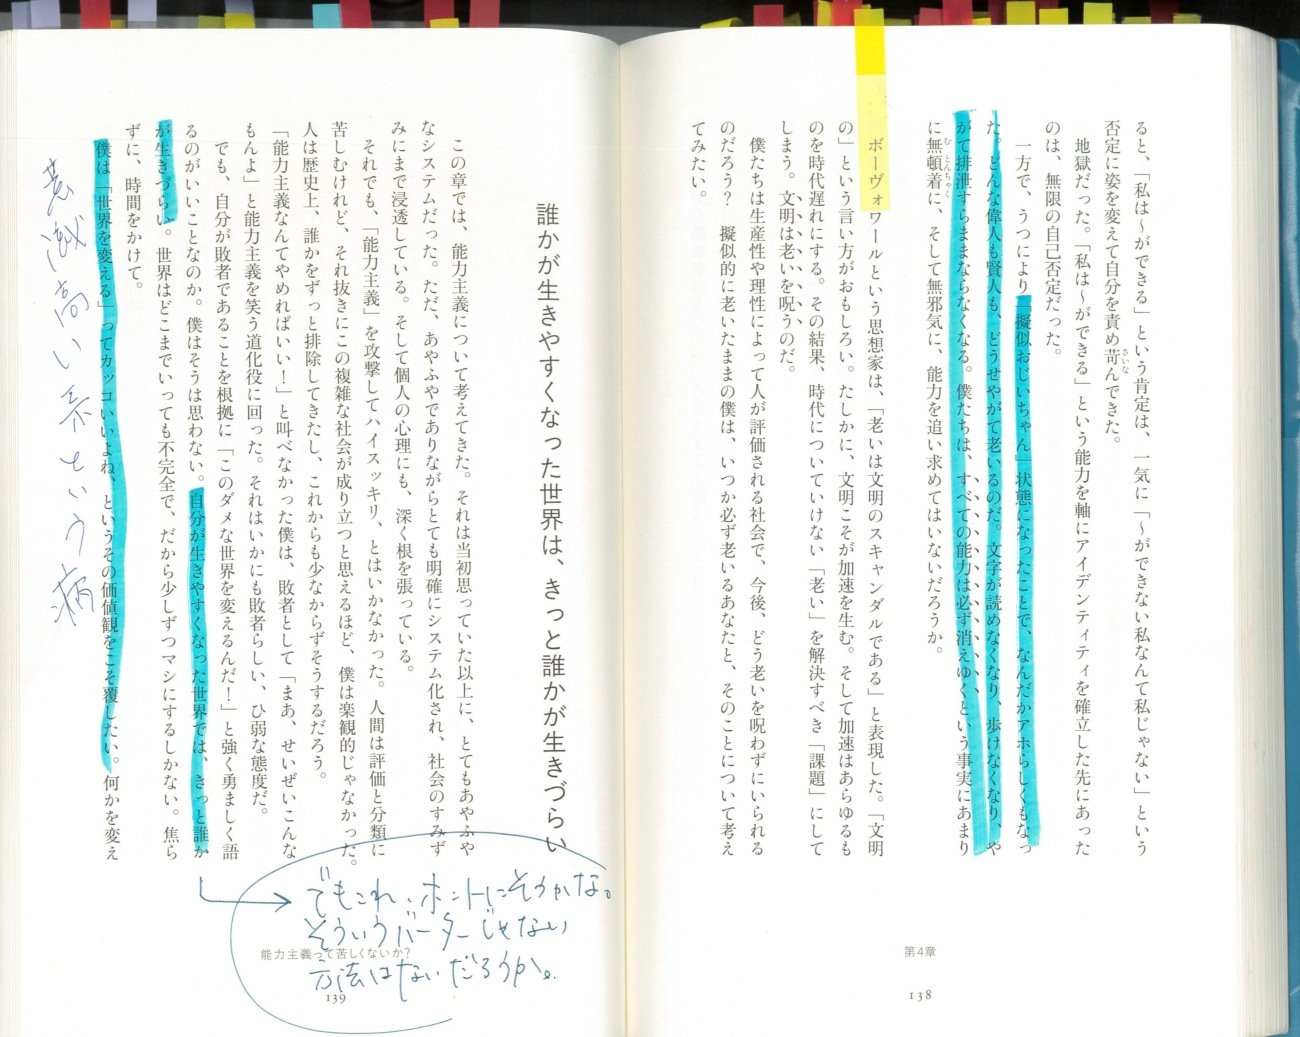 ると、「私は〜ができる」という肯定は、一気に「〜ができない私なんて私じゃない」という
否定に姿を変えて自分を責め苛んできた。
さいな
地獄だった。「私は〜ができる」という能力を軸にアイデンティティを確立した先にあった
のは、無限の自己否定だった。
一方で、うつにより「擬似おじいちゃん」状態になったことで、なんだかアホらしくもなっ
た。どんな偉人も賢人も、どうせやがて老いるのだ。文字が読めなくなり、歩けなくなり、や
がて排泄すらままならなくなる。僕たちは、すべての能力は必ず消えゆくという事実にあまり
に無頓着に、そして無邪気に、能力を追い求めてはいないだろうか。
む とんちゃく
ボーヴォワールという思想家は、「老いは文明のスキャンダルである」と表現した。「文明
の」という言い方がおもしろい。たしかに、文明こそが加速を生む。そして加速はあらゆるも
のを時代遅れにする。その結果、時代についていけない「老い」を解決すべき「課題」にして
しまう。文明は老いを呪うのだ。
僕たちは生産性や理性によって人が評価される社会で、今後、どう老いを呪わずにいられる
のだろう？ 擬似的に老いたままの僕は、いつか必ず老いるあなたと、そのことについて考え
てみたい。
第4章
138
誰かが生きやすくなった世界は、きっと誰かが生きづらい
この章では、能力主義について考えてきた。それは当初思っていた以上に、とてもあやふや
なシステムだった。ただ、あやふやでありながらとても明確にシステム化され、社会のすみず
みにまで浸透している。そして個人の心理にも、深く根を張っている。
それでも、「能力主義」を攻撃してハイスッキリ、とはいかなかった。人間は評価と分類に
苦しむけれど、それ抜きにこの複雑な社会が成り立つと思えるほど、僕は楽観的じゃなかった。
人は歴史上、誰かをずっと排除してきたし、これからも少なからずそうするだろう。
「能力主義なんてやめればいい！」と叫べなかった僕は、敗者として「まあ、せいぜいこんな
もんよ」と能力主義を笑う道化役に回った。それはいかにも敗者らしい、ひ弱な態度だ。
でも、自分が敗者であることを根拠に「このダメな世界を変えるんだ！」と強く勇ましく語
るのがいいことなのか。僕はそうは思わない。自分が生きやすくなった世界では、きっと誰か
が生きづらい。世界はどこまでいっても不完全で、だから少しずつマシにするしかない。焦ら
ずに、時間をかけて。
僕は「世界を変える」ってカッコいいよね、というその価値観をこそ覆したい。何かを変え
意識高い系という病
でもこれ、ホントにそうかな。
そういうバーターじゃない
方法はないだろうか。
能力主義って苦しくないか？
139